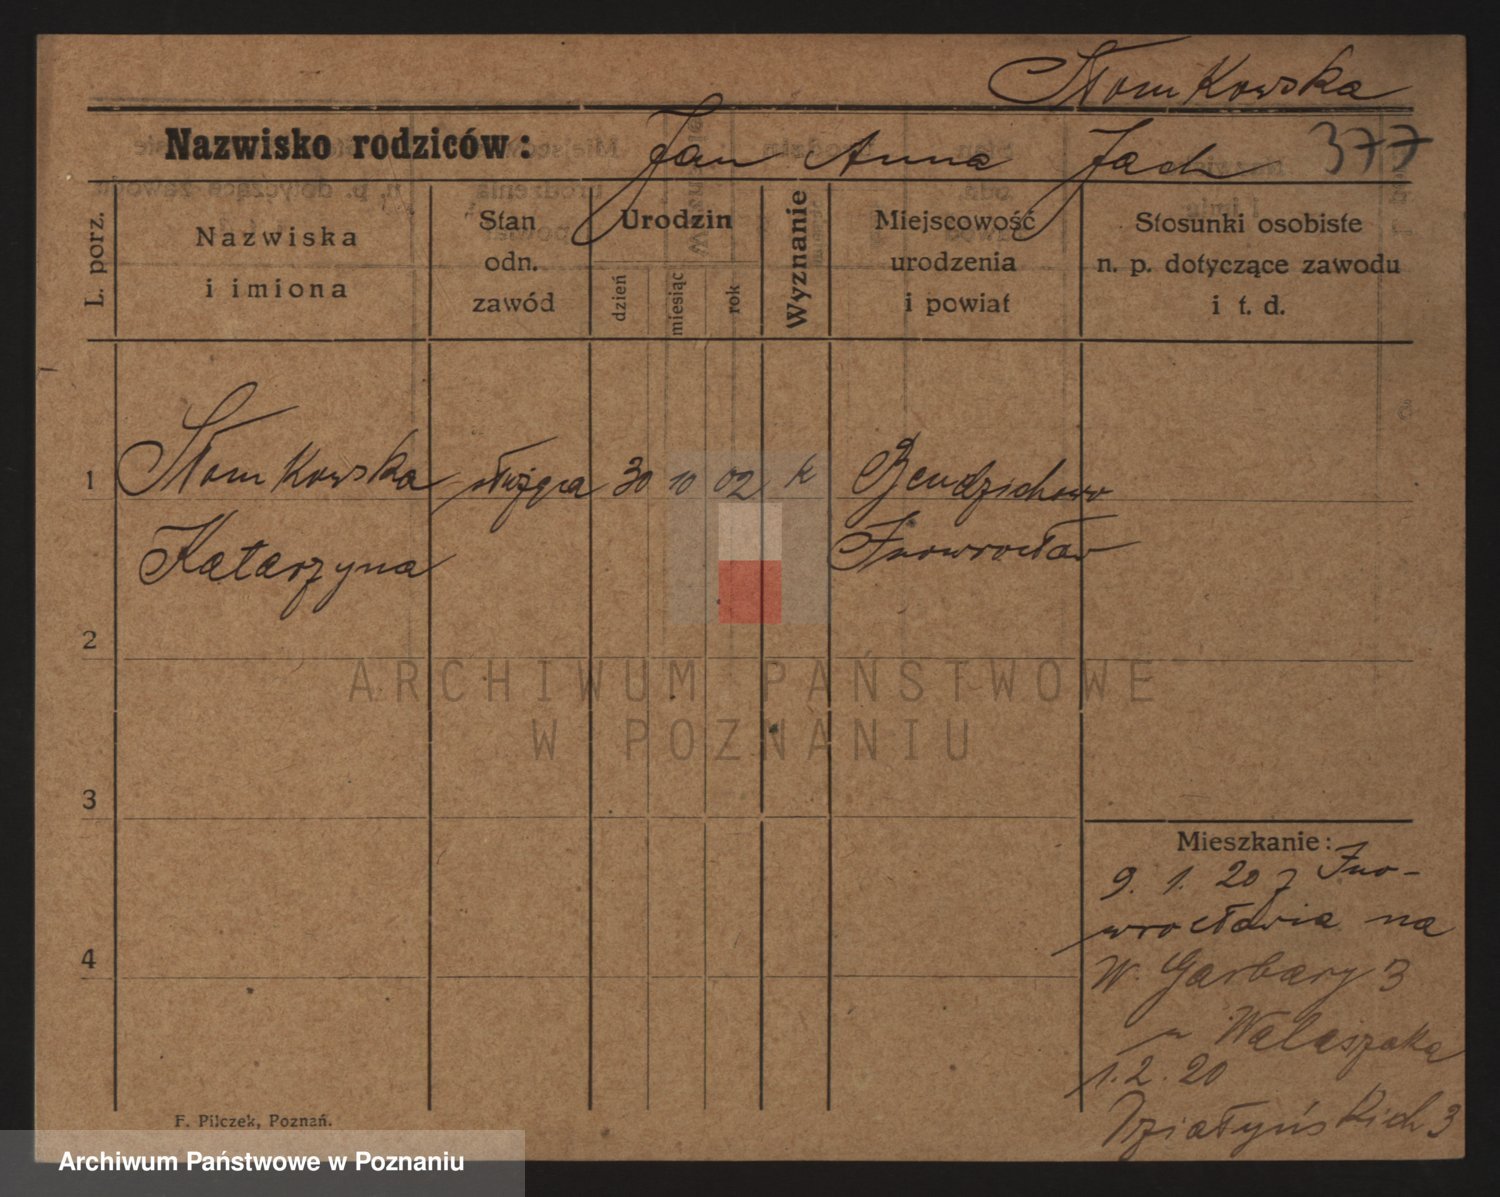 Słomkowska
Nazwisko rodziców: Jan Anna Jach 377
L. porz.
Nazwiska
i imiona
Stan
odn.
zawód
Urodzin
dzień
miesiąc
rok
Wyznanie
Miejscowość
urodzenia
i powiat
Stosunki osobiste
n. p. dotyczące zawodu
i t. d.
1 Słomkowska służąca 30 10 02 k Bendzichowo
Katarzyna Inowrocław
2
3
4
Mieszkanie:
9. 1. 20 z Ino-
wrocławia na
W. Garbary 3
u Walaszaka
1. 2. 20
Działyńskich 3
F. Pilczek, Poznań.
ARCHIWUM PAŃSTWOWE
W POZNANIU
Archiwum Państwowe w Poznaniu